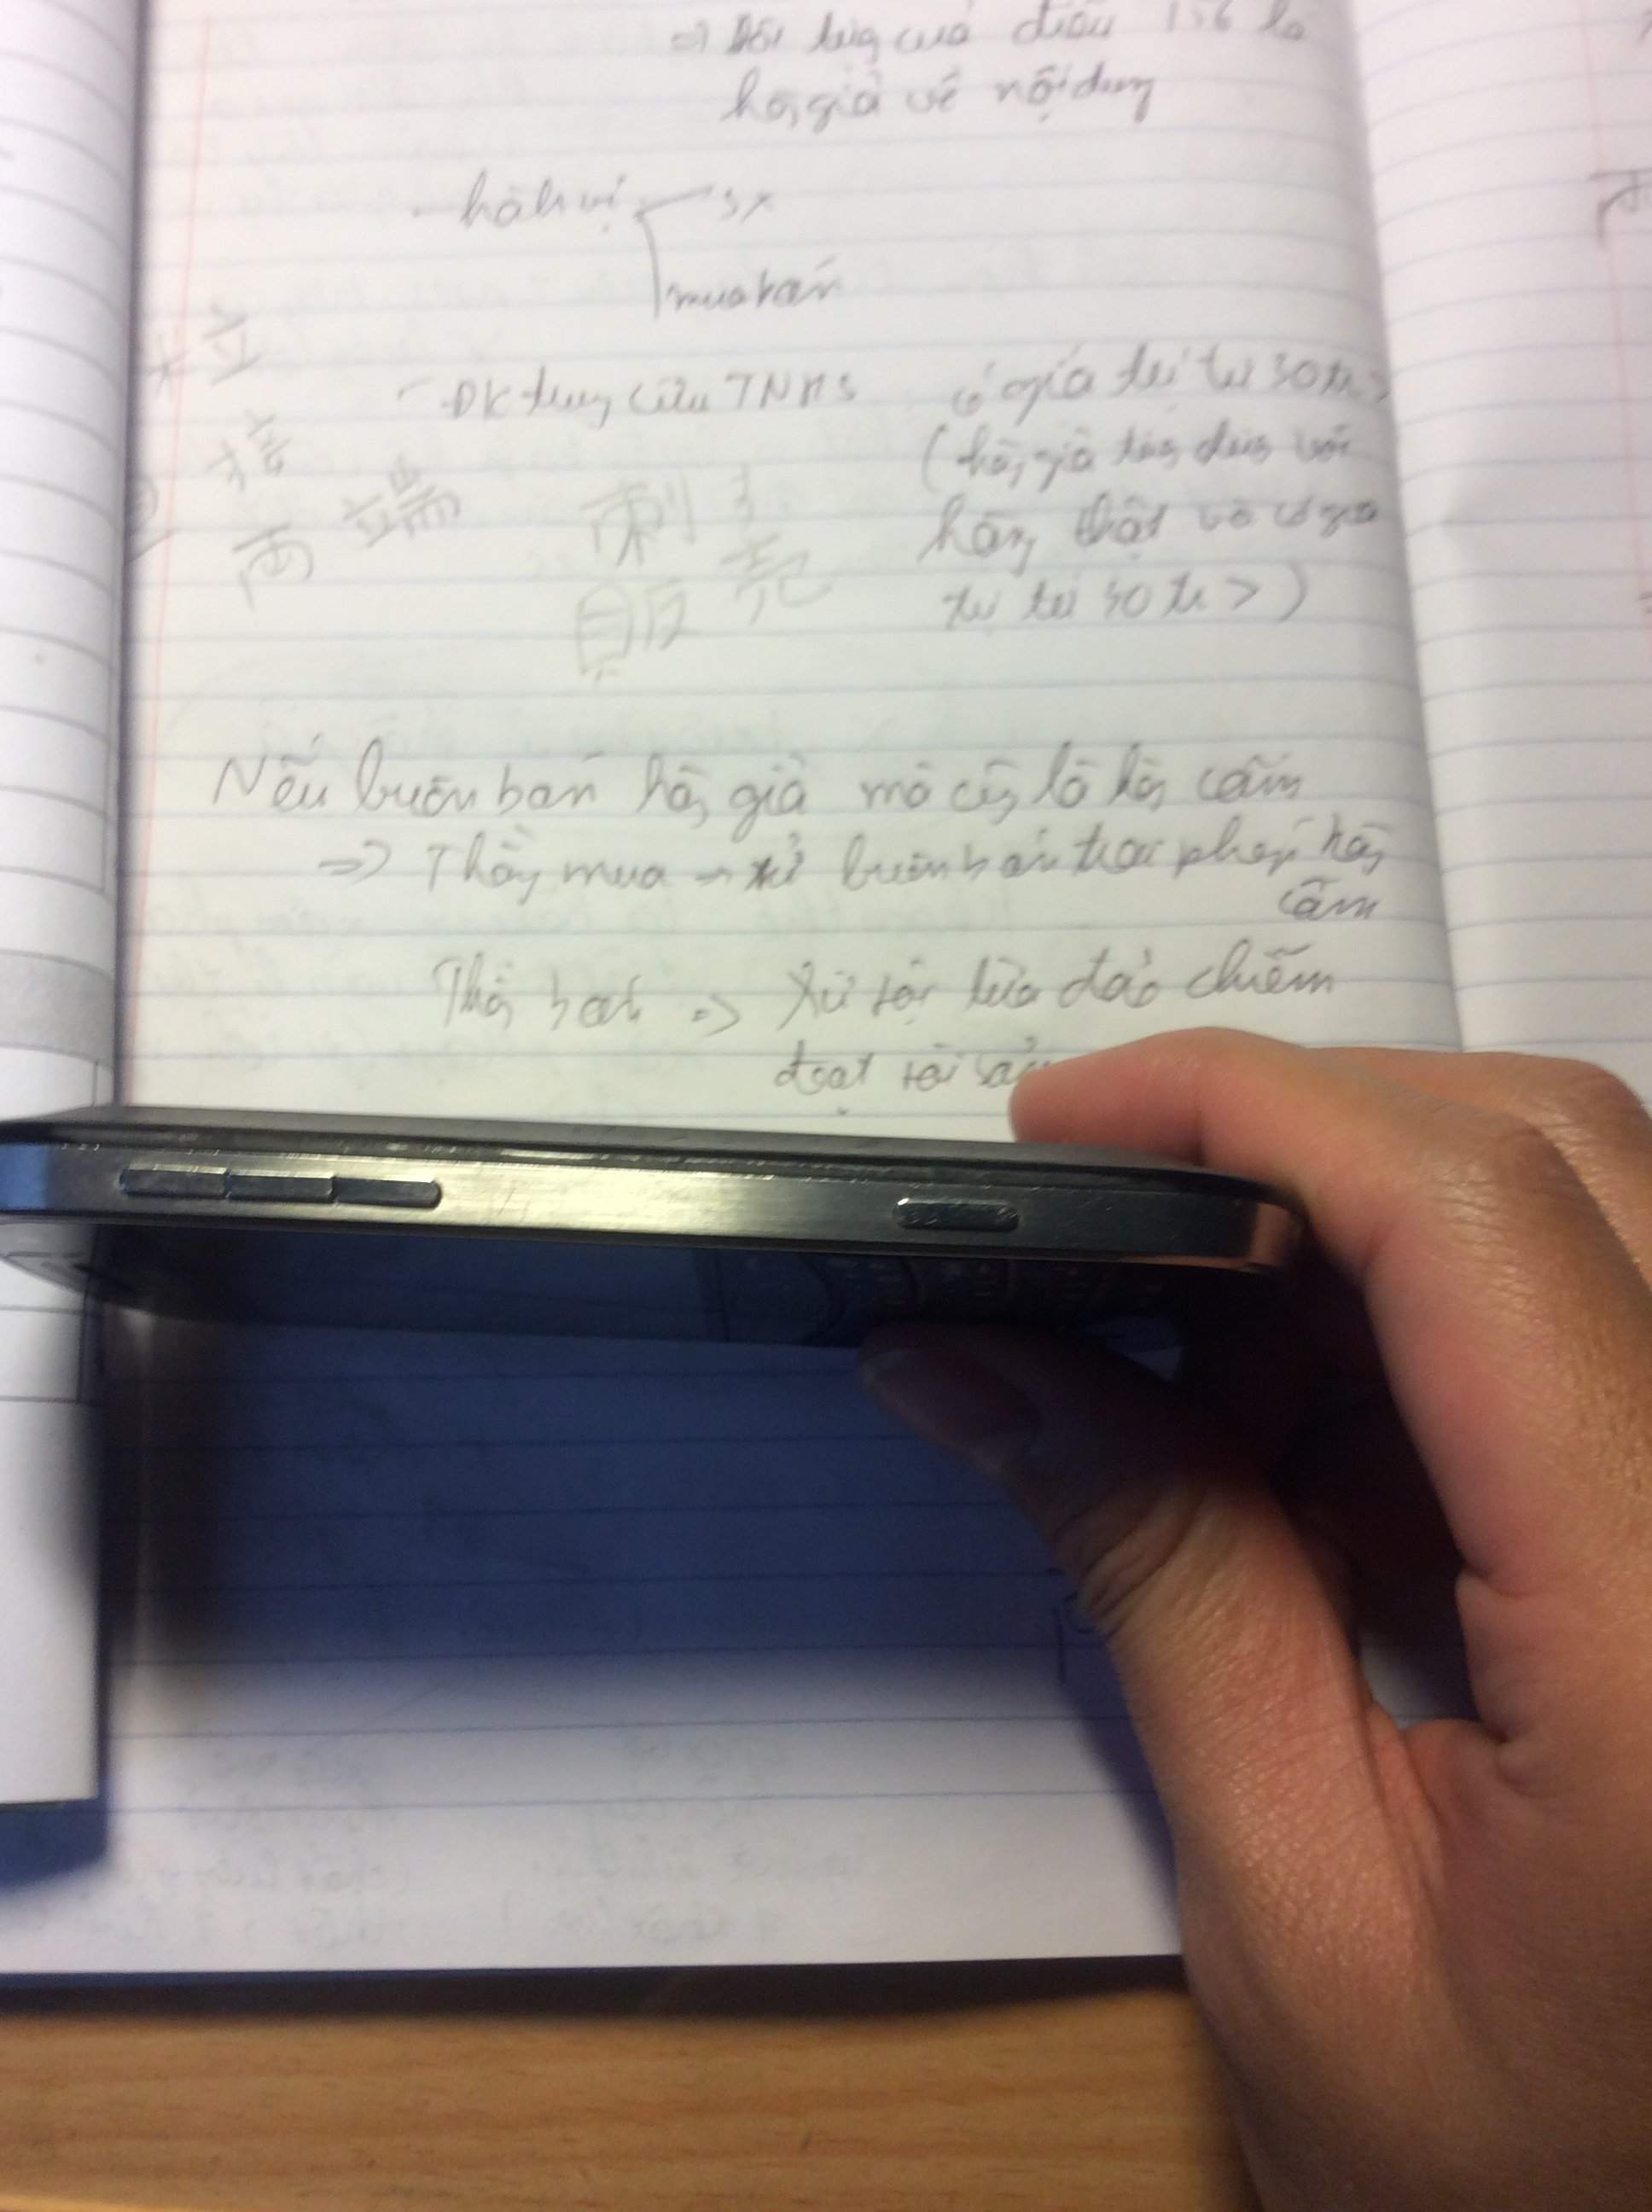 => Đối tượng của điều 156 là
hàg giả về nội dung
- hành vi sx
mua bán
- ĐK truy cứu TNHS có giá trị từ 30tr >
(hàg giả tươg đươg với
hàng thật và có giá
trị từ 30 tr >)
立
端
両
刺
販 売
Nếu buôn bán hàg giả mà cũg là hàg cấm
=> Thằg mua → xử buôn bán trái phép hàg
cấm
Thằg bán => Xử tội lừa đảo chiếm
đoạt tài sản